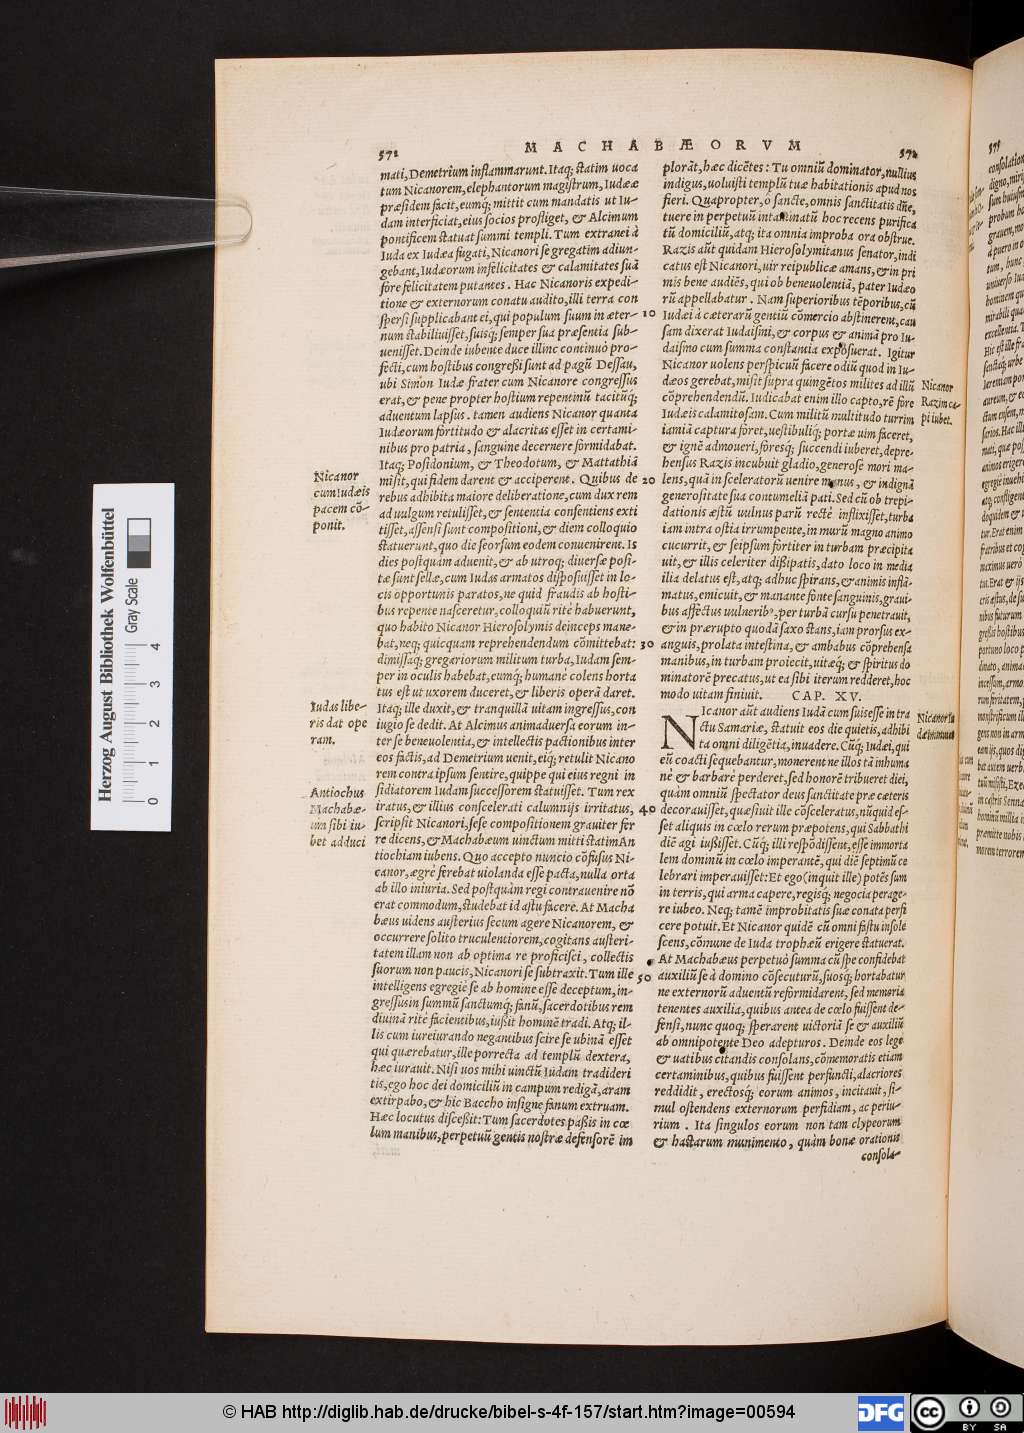 MACHABÆORVM
572
mati, Demetrium inflammarunt. Itaq; statim uoca
tum Nicanorem, elephantorum magistrum, Iudææ
præsidem facit, eumq; mittit cum mandatis ut Iu-
dam interficiat, eius socios profliget, & Alcimum
pontificem statuat summi templi. Tum extranei à
Iuda ex Iudæa fugati, Nicanori se gregatim adiun-
gebant, Iudæorum infelicitates & calamitates suā
fore felicitatem putantes. Hac Nicanoris expedi-
tione & externorum conatu audito, illi terra con
spersi supplicabant ei, qui populum suum in æter-
num stabiliuisset, suisq; semper sua præsentia sub-
uenisset. Deinde iubente duce illinc continuò pro-
fecti, cum hostibus congreßi sunt ad pagū Dessau,
ubi Simon Iudæ frater cum Nicanore congressus
erat, & pene propter hostium repentinū tacitūq;
aduentum lapsus. tamen audiens Nicanor quanta
Iudæorum fortitudo & alacritas esset in certami-
nibus pro patria, sanguine decernere formidabat.
Itaq; Posidonium, & Theodotum, & Mattathiā
misit, qui fidem darent & acciperent. Quibus de
rebus adhibita maiore deliberatione, cum dux rem
ad uulgum retulisset, & sententia consentiens exti
tisset, assensi sunt compositioni, & diem colloquio
statuerunt, quo die seorsum eodem conuenirent. Is
dies postquàm aduenit, & ab utroq; diuersæ posi-
tæ sunt sellæ, cum Iudas armatos disposuisset in lo-
cis opportunis paratos, ne quid fraudis ab hosti-
bus repente nasceretur, colloquiū ritè habuerunt,
quo habito Nicanor Hierosolymis deinceps mane-
bat, neq; quicquam reprehendendum cōmittebat:
dimissaq; gregariorum militum turba, Iudam sem-
per in oculis habebat, eumq; humanè colens horta
tus est ut uxorem duceret, & liberis operā daret.
Itaq; ille duxit, & tranquillā uitam ingressus, con
iugio se dedit. At Alcimus animaduersa eorum in-
ter se beneuolentia, & intellectis pactionibus inter
eos factis, ad Demetrium uenit, eiq; retulit Nicano
rem contra ipsum sentire, quippe qui eius regni in
sidiatorem Iudam successorem statuisset. Tum rex
iratus, & illius conscelerati calumnijs irritatus,
scripsit Nicanori, sese compositionem grauiter fer
re dicens, & Machabæum uinctum mitti statim An
tiochiam iubens. Quo accepto nuncio cōfusus Ni-
canor, ægrè ferebat uiolanda esse pacta, nulla orta
ab illo iniuria. Sed postquàm regi contrauenire nō
erat commodum, studebat id astu facere. At Macha
bæus uidens austerius secum agere Nicanorem, &
occurrere solito truculentiorem, cogitans austeri-
tatem illam non ab optima re proficisci, collectis
suorum non paucis, Nicanori se subtraxit. Tum ille
intelligens egregiè se ab homine esse deceptum, in-
gressus in summū sanctumq; fanū, sacerdotibus rem
diuinā ritè facientibus, iußit hominē tradi. Atq; il-
lis cum iureiurando negantibus scire se ubinā esset
qui quærebatur, ille porrecta ad templū dextera,
hæc iurauit. Nisi uos mihi uinctū Iudam tradideri
tis, ego hoc dei domiciliū in campum redigā, aram
extirpabo, & hic Baccho insigne fanum extruam.
Hæc locutus disceßit: Tum sacerdotes paßis in cœ
lum manibus, perpetuū gentis nostræ defensorē im
Nicanor
cum Iudæis
pacem cō-
ponit.
Iudas libe-
ris dat ope
ram.
Antiochus
Machabæ-
um sibi iu-
bet adduci
10
20
30
40
50
574
plorāt, hæc dicētes: Tu omniū dominator, nullius
indigus, uoluisti templū tuæ habitationis apud nos
fieri. Quapropter, ô sancte, omnis sanctitatis dñe,
tuere in perpetuū intaminatū hoc recens purifica
tū domiciliū, atq; ita omnia improba ora obstrue.
Razis aūt quidam Hierosolymitanus senator, indi
catus est Nicanori, uir reipublicæ amans, & in pri
mis bene audiēs, qui ob beneuolentiā, pater Iudæo
rū appellabatur. Nam superioribus tēporibus, cū
Iudæi à cæterarū gentiū cōmercio abstinerent, cau
sam dixerat Iudaismi, & corpus & animā pro Iu-
daismo cum summa constantia exposuerat. Igitur
Nicanor uolens perspicuū facere odiū quod in Iu-
dæos gerebat, misit supra quingētos milites ad illū
cōprehendendū. Iudicabat enim illo capto, rē fore
Iudæis calamitosam. Cum militū multitudo turrim
iamiā captura foret, uestibuliq; portæ uim faceret,
& ignē admoueri, foresq; succendi iuberet, depre-
hensus Razis incubuit gladio, generosè mori ma-
lens, quā in sceleratorū uenire manus, & indignā
generositate sua contumeliā pati. Sed cū ob trepi-
dationis æstū uulnus parū rectè inflixisset, turba
iam intra ostia irrumpente, in murū magno animo
cucurrit, & seipsum fortiter in turbam præcipita
uit, & illis celeriter dißipatis, dato loco in media
ilia delatus est, atq; adhuc spirans, & animis inflā-
matus, emicuit, & manante fonte sanguinis, graui-
bus affectus uulnerib⁹, per turbā cursu penetrauit,
& in prærupto quodā saxo stans, iam prorsus ex-
anguis, prolata intestina, & ambabus cōprehensa
manibus, in turbam proiecit, uitæq; & spiritus do
minatorē precatus, ut ea sibi iterum redderet, hoc
modo uitam finiuit. CAP. XV.
NIcanor aūt audiens Iudā cum suis esse in tra
ctu Samariæ, statuit eos die quietis, adhibi
ta omni diligētia, inuadere. Cūq; Iudæi, qui
eū coacti sequebantur, monerent ne illos tā inhuma
nè & barbarè perderet, sed honorē tribueret diei,
quàm omniū spectator deus sanctitate præ cæteris
decorauisset, quæsiuit ille cōsceleratus, nūquid es-
set aliquis in cœlo rerum præpotens, qui Sabbathi
diē agi iußisset. Cūq; illi respōdissent, esse immorta
lem dominū in cœlo imperantē, qui diē septimū ce
lebrari imperauisset: Et ego (inquit ille) potēs sum
in terris, qui arma capere, regisq; negocia perage-
re iubeo. Neq; tamē improbitatis suæ conata perfi
cere potuit. Et Nicanor quidē cū omni fastu insole
scens, cōmune de Iuda trophæū erigere statuerat.
At Machabæus perpetuò summa cū spe confidebat
auxiliū se à domino cōsecuturū, suosq; hortabatur
ne externorū aduentū reformidarent, sed memoria
tenentes auxilia, quibus antea de cœlo fuissent de-
fensi, nunc quoq; sperarent uictoriā se & auxiliū
ab omnipotente Deo adepturos. Deinde eos lege
& uatibus citandis consolans, cōmemoratis etiam
certaminibus, quibus fuissent perfuncti, alacriores
reddidit, erectosq; eorum animos, incitauit, si-
mul ostendens externorum perfidiam, ac periu-
rium. Ita singulos eorum non tam clypeorum
& hastarum munimento, quàm bonæ orationis
consola-
Nicanor
Razim ca-
pi iubet.
Nicanor Iu
dæi inuadit
575
Herzog August Bibliothek Wolfenbüttel
Gray Scale
0 1 2 3 4
© HAB http://diglib.hab.de/drucke/bibel-s-4f-157/start.htm?image=00594
DFG
cc
BY SA